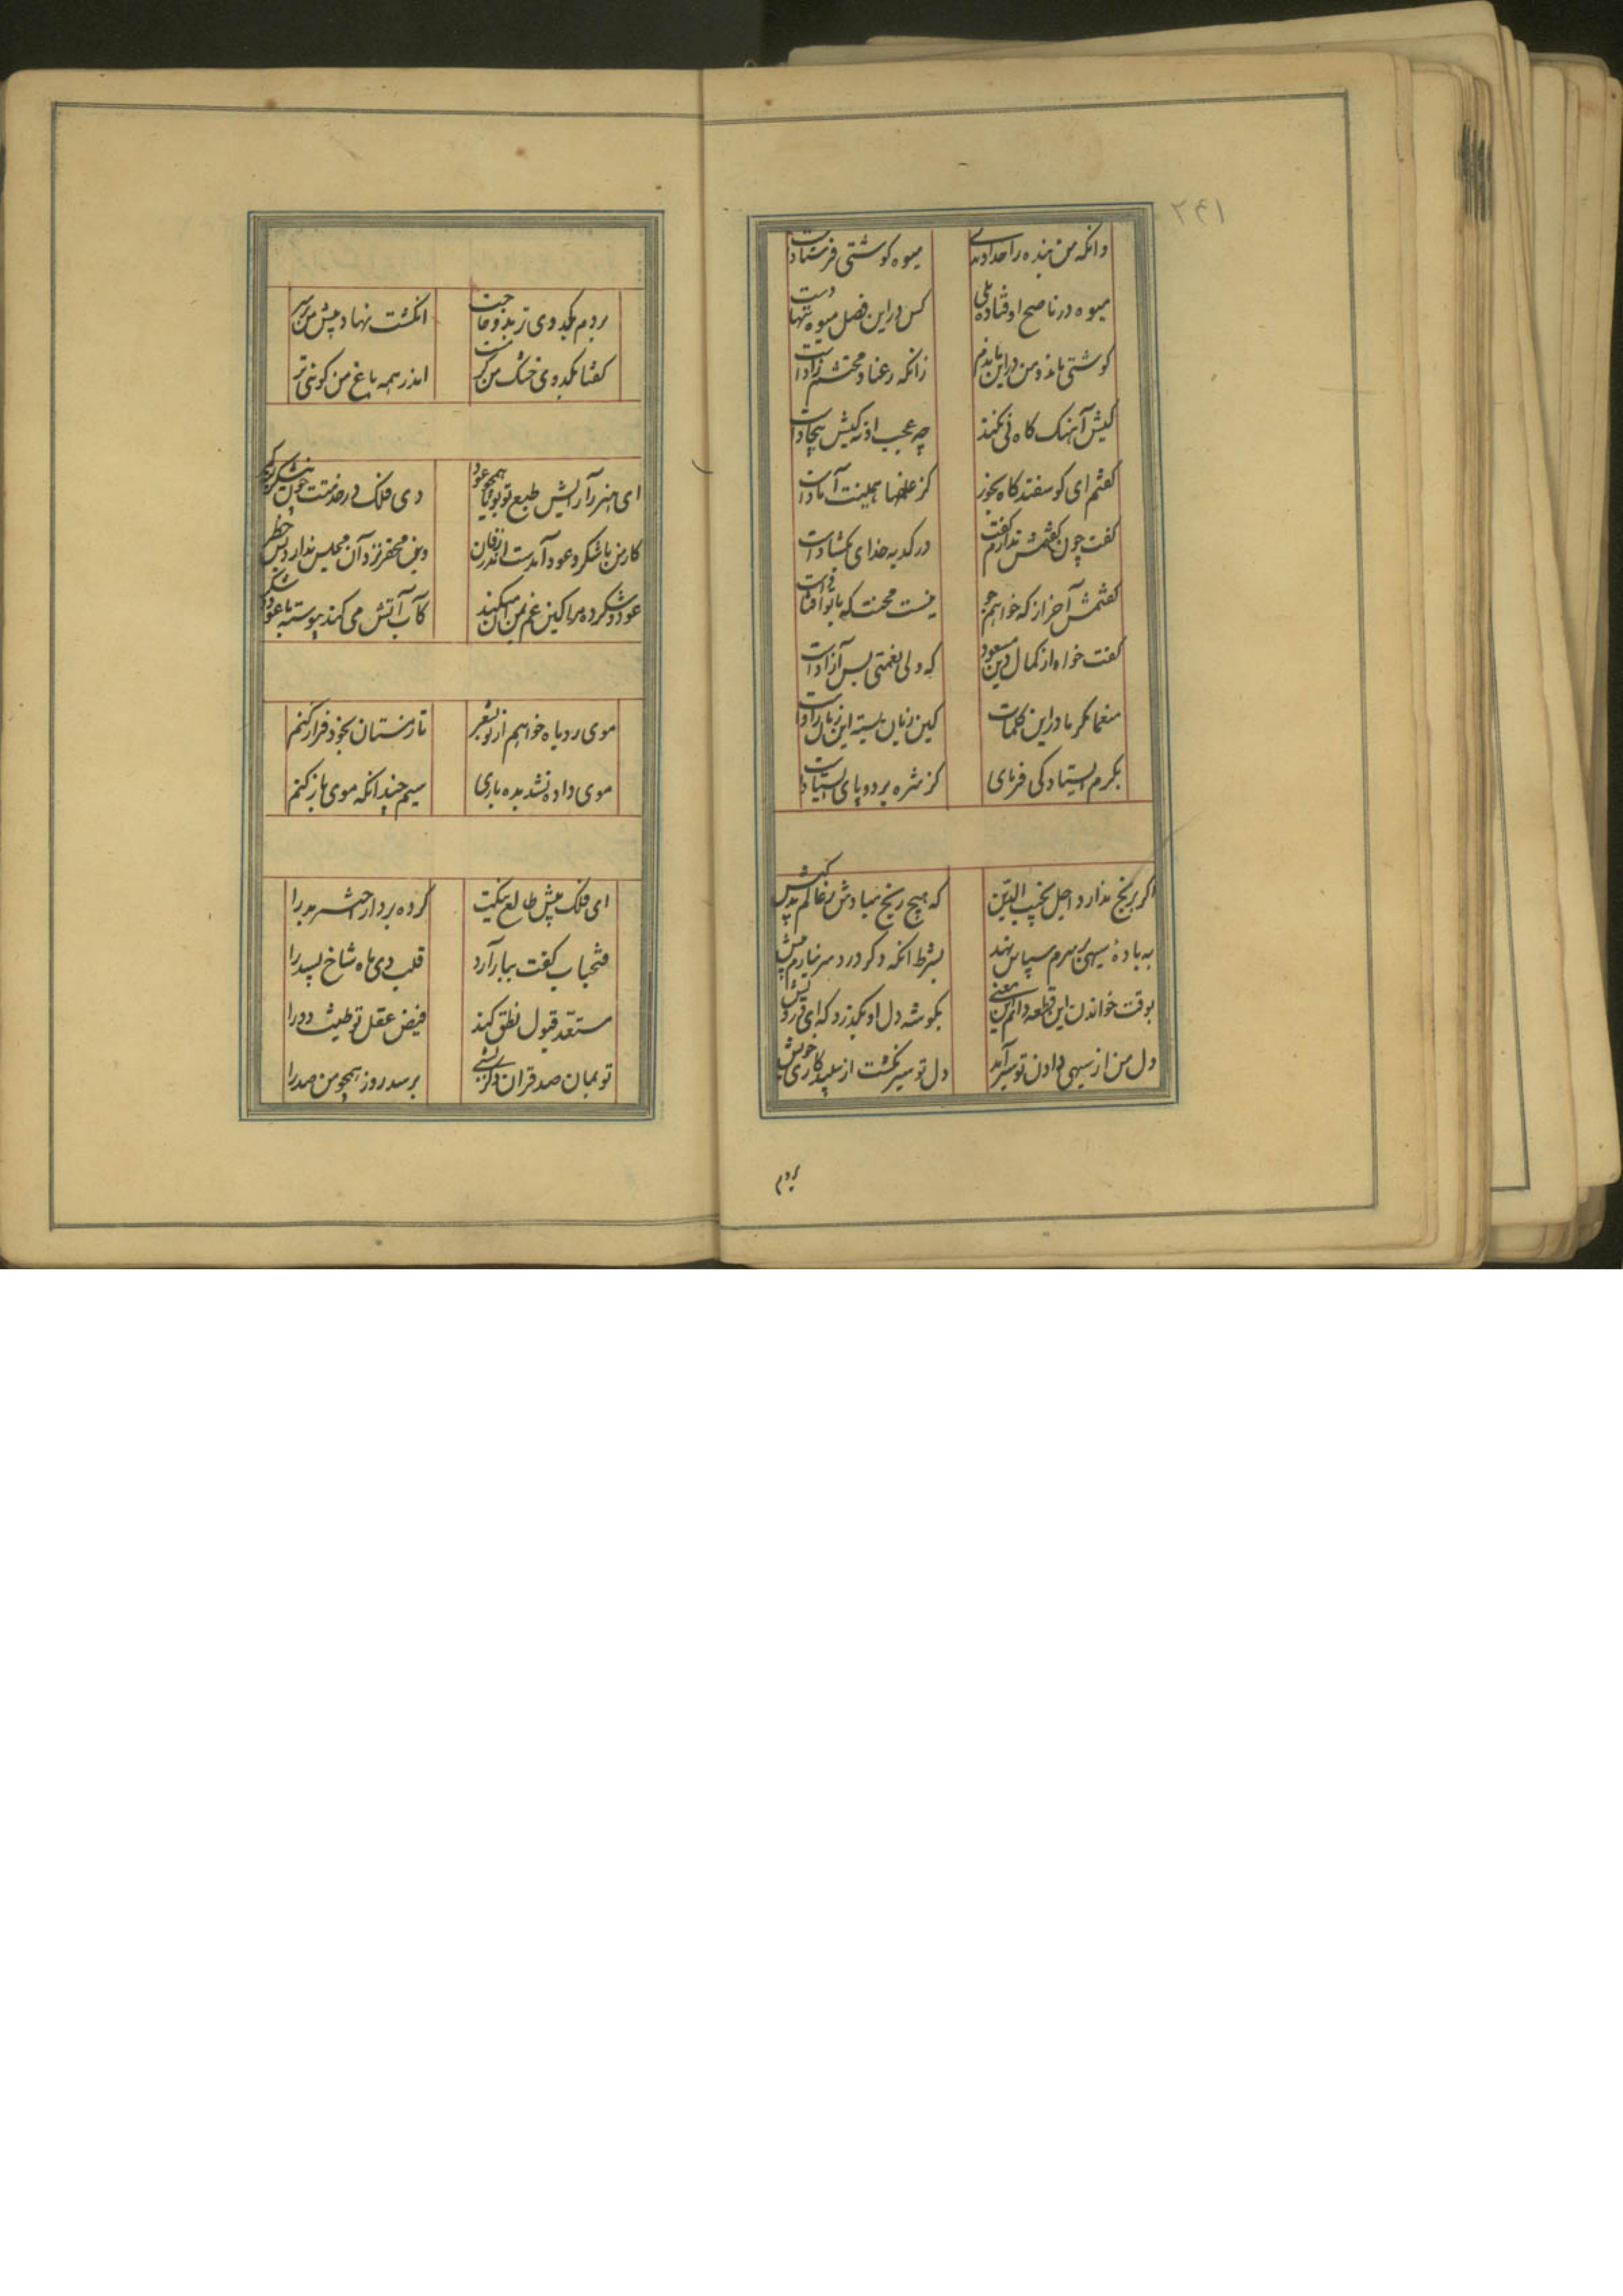 ۲۹۱
وانکه من بنده را خداوندی میوه کوشتی فرستادست
میوه در ناضج اوفتاده بلی کس در این فصل میوه ننهادست
کوشتی ماند و من در این ماندم زانکه رعنا و محتشم زادست
کیش آهنک کاه نی نکند چه عجب از کیش بیجادست
کفتم ای کوسفند کاه بخور کز علفها همینت آمادست
کفت جو کفتمش ندارم کفت در کدیه خدای بکشادست
کفتمش آخر از که خواهم جو نیست محنت که با تو افتادست
کفت خواه از کمال دین مسعود که ولی نعمتی بس آزادست
منعما مکرما در این کلمات کین زبان بسته این زبان دادست
بکرم ایستادکی فرمای کز شره بر دو پای ایستادست
اکر برنج ندارد اجل نجیب الدین که هیچ رنج مبادش ز عالم بدکیش
به باده سیهی بر سرم سپاس نهد بشرط انکه دکر درد سر نیارم پیش
بوقت خواندن این قطعه دانم این معنی بکوشه دل او بکذرد که ای درویش
دل من از سیهی دادن تو سیر آمد دل تو سیر نکشت از سپیدکاری خویش
بردم
بردم بکدوی تر بدو حاجت انکشت نهاد پیش من بر سر
کفتا بکدوی خشک من کرهست اندر همه باغ من کدوئی تر
ای هنر را رایش طبع تو بویا همچو عود وی فلک در خدمتت چون نیشکر بسته کمر
کار من با شکر و عود آمدست اندر زفان وین محقر نزد آن مجلس ندارد بس خطر
عود و شکر ده مرا کین غم بمن آن میکند کآب و آتش می کند پیوسته با عود و شکر
موی روباه خواهم از تو بشعر تا زمستان بخود فراز کنم
موی داده نشد بده باری سیم چندانکه موی باز کنم
ای فلک پیش طالع نیکت کرده بردار اختر بد را
فتحیاب کفت ببار آرد قلب دی ماه شاخ بسد را
مستعد قبول نطق کند فیض عقل تو طبیعت دد را
تو بمان صد قران و کر نبشی برسد روز همچو من صد را